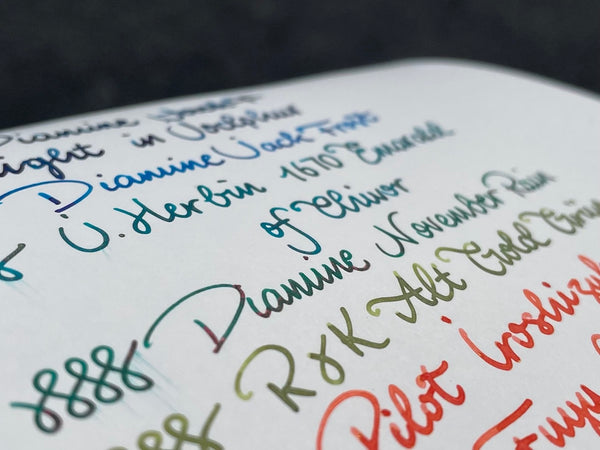 Diamine
Night in
Diamine Jack Frost
J. Herbin 1670 Emerald
of Chivor
Diamine November Rain
R&K Alt Gold Grün
Pilot Iroshizuku
Fuyu